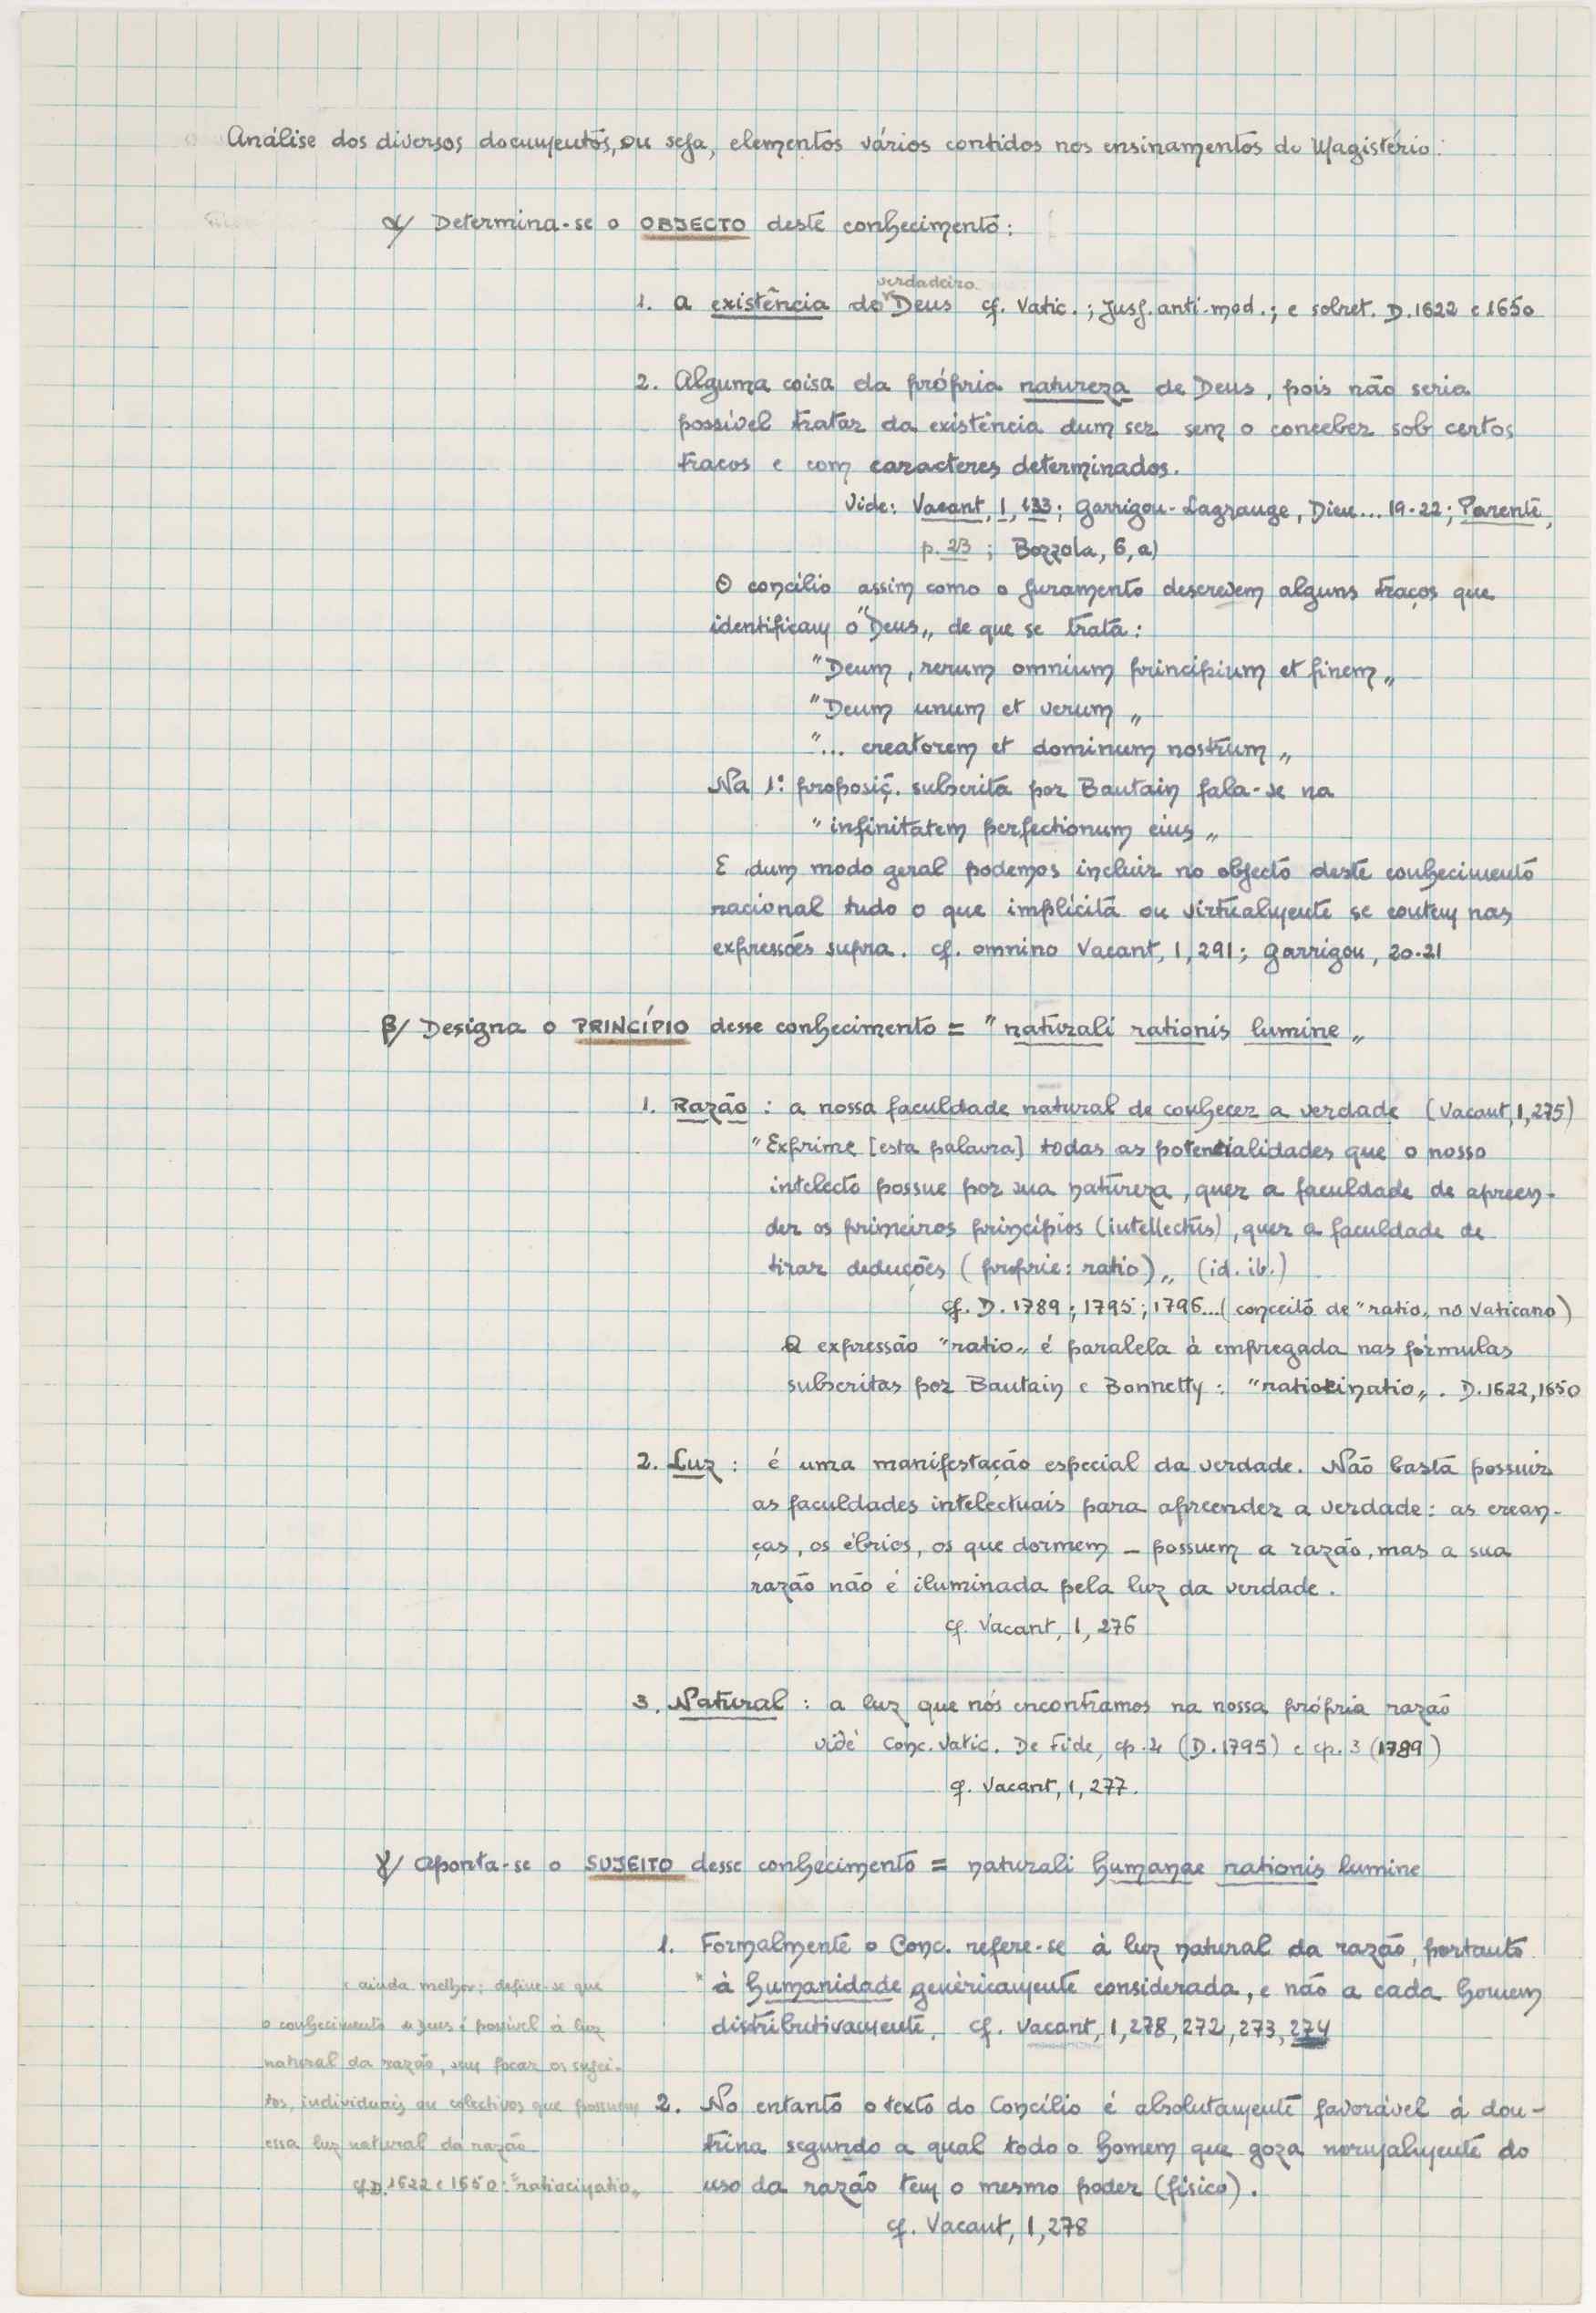 Análise dos diversos documentos, ou seja, elementos vários contidos nos ensinamentos do Magistério:
α/ Determina-se o OBJECTO deste conhecimento:
verdadeiro
1. a existência do Deus cf. Vatic.; Jusj. anti-mod.; e sobret. D.1622 e 1650
2. Alguma coisa da própria natureza de Deus, pois não seria
possível tratar da existência dum ser sem o conceber sob certos
traços e com caracteres determinados.
Vide: Vacant, 1, 133; Garrigou-Lagrange, Dieu... 19-22; Parente,
p. 23; Bozzola, 6, a)
O concílio assim como o juramento descrevem alguns traços que
identificam o "Deus„ de que se trata:
"Deum, rerum omnium principium et finem„
"Deum unum et verum„
"... creatorem et dominum nostrum„
Na 1ª proposiç. subscrita por Bautain fala-se na
"infinitatem perfectionum eius„
E dum modo geral podemos incluir no objecto deste conhecimento
racional tudo o que implícita ou virtualmente se contem nas
expressões supra. cf. omnino Vacant, 1, 291; Garrigou, 20-21
β/ Designa o PRINCÍPIO desse conhecimento = "naturali rationis lumine„
1. Razão: a nossa faculdade natural de conhecer a verdade (Vacant, 1, 275)
"Exprime [esta palavra] todas as potencialidades que o nosso
intelecto possue por sua natureza, quer a faculdade de apreen-
der os primeiros princípios (intellectus), quer a faculdade de
tirar deduções (proprie: ratio)„ (id. ib.)
cf. D. 1789; 1795; 1796... (conceito de "ratio„ no Vaticano)
A expressão "ratio„ é paralela à empregada nas fórmulas
subscritas por Bautain e Bonnetty: "ratiocinatio„. D.1622, 1650
2. Luz: é uma manifestação especial da verdade. Não basta possuir
as faculdades intelectuais para apreender a verdade: as crean-
ças, os ébrios, os que dormem – possuem a razão, mas a sua
razão não é iluminada pela luz da verdade.
cf. Vacant, 1, 276
3. Natural: a luz que nós encontramos na nossa própria razão
vide Conc. Vatic. De Fide, cp. 4 (D.1795) e cp. 3 (1789)
cf. Vacant, 1, 277.
γ/ Aponta-se o SUJEITO desse conhecimento = naturali humanae rationis lumine
1. Formalmente o Conc. refere-se à luz natural da razão, portanto
* à humanidade genèricamente considerada, e não a cada homem
distributivamente. cf. Vacant, 1, 278, 272, 273, 274
x ainda melhor: define-se que
o conhecimento de Deus é possível à luz
natural da razão, sem focar os sujei-
tos, individuais ou colectivos que possuem
essa luz natural da razão
cf. D. 1622 e 1650: "ratiocinatio„
2. No entanto o texto do Concílio é absolutamente favorável à dou-
trina segundo a qual todo o homem que goza normalmente do
uso da razão tem o mesmo poder (físico).
cf. Vacant, 1, 278